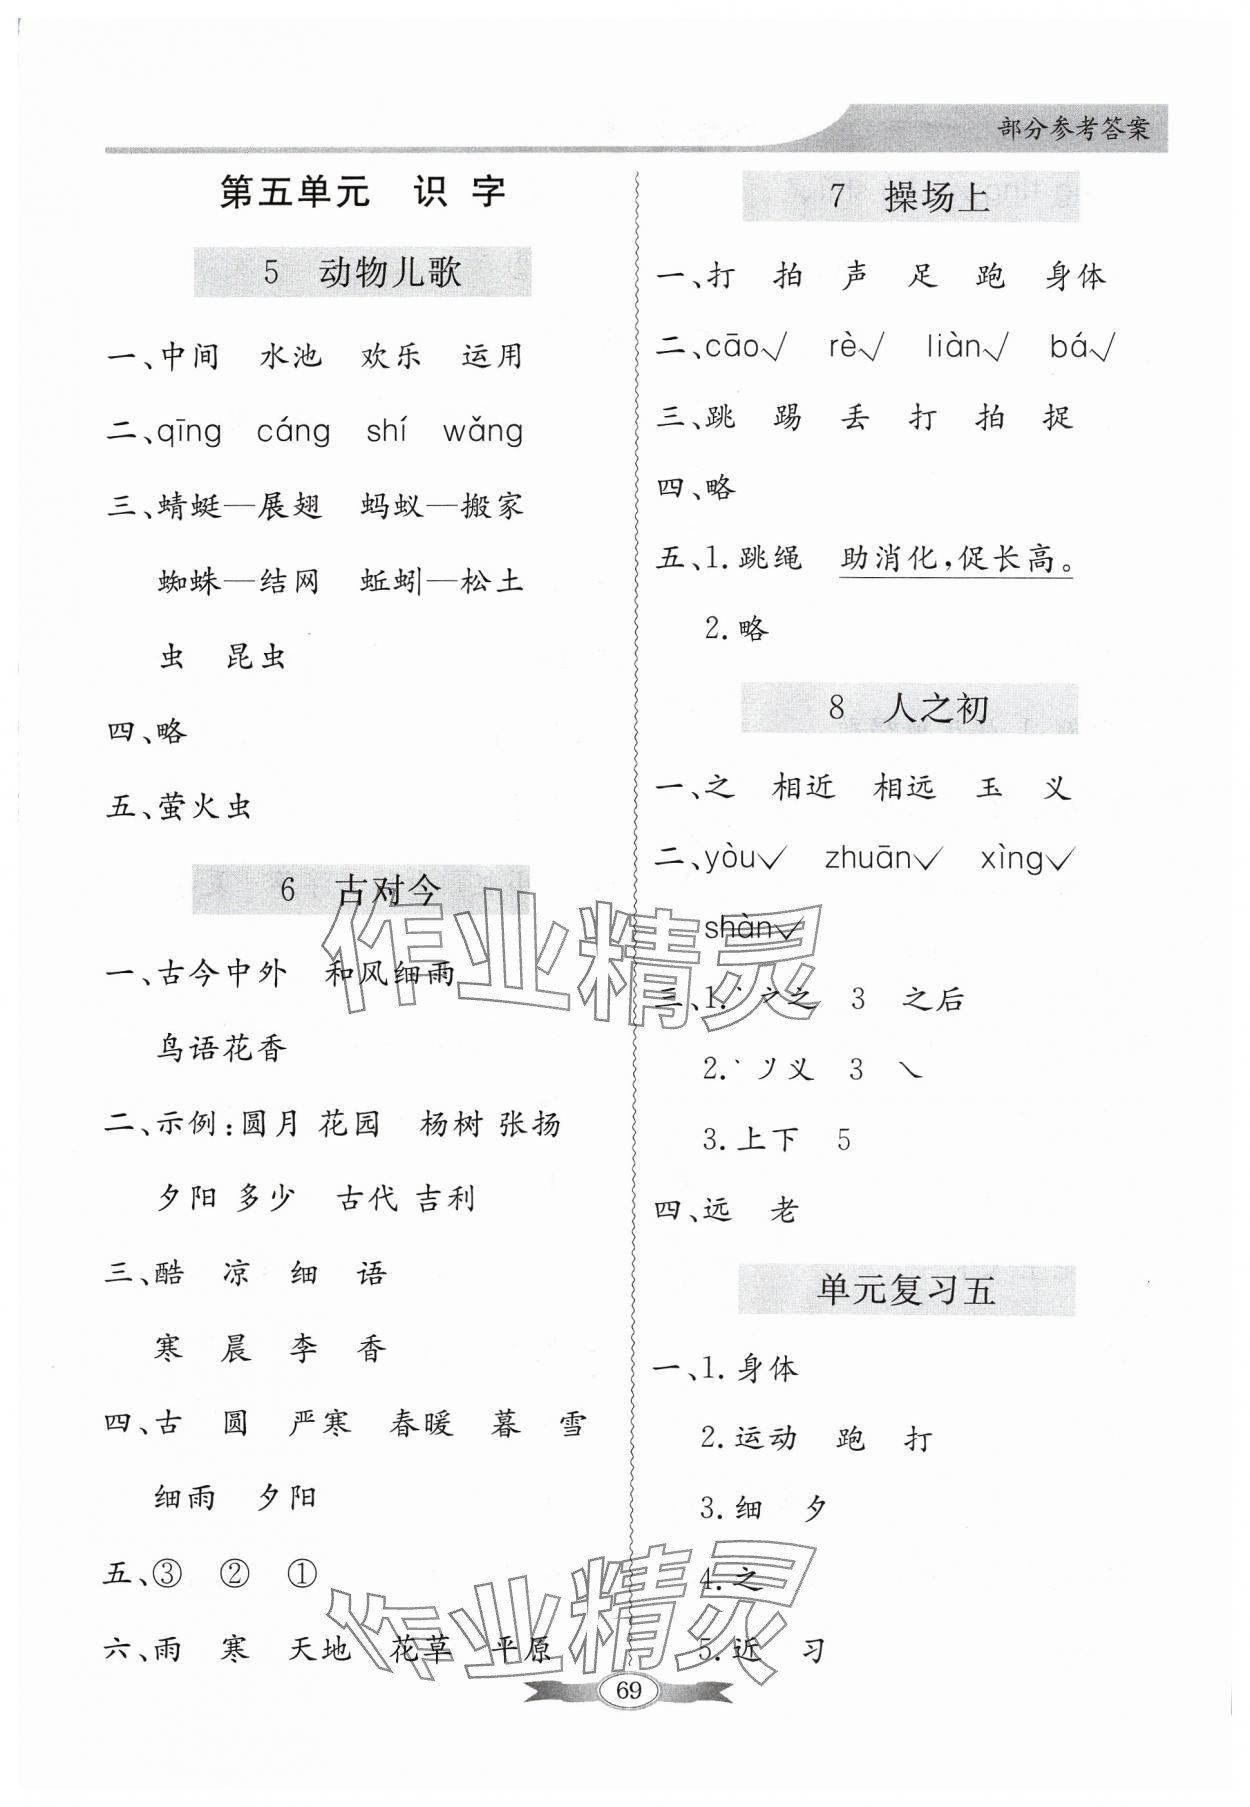 部分参考答案
第五单元 识字
5 动物儿歌
一、中间 水池 欢乐 运用
二、qīng cáng shí wǎng
三、蜻蜓—展翅 蚂蚁—搬家
蜘蛛—结网 蚯蚓—松土
虫 昆虫
四、略
五、萤火虫
6 古对今
一、古今中外 和风细雨
鸟语花香
二、示例:圆月 花园 杨树 张扬
夕阳 多少 古代 吉利
三、酷 凉 细 语
寒 晨 李 香
四、古 圆 严寒 春暖 暮 雪
细雨 夕阳
五、③ ② ①
六、雨 寒 天地 花草 平原
7 操场上
一、打 拍 声 足 跑 身体
二、cāo√ rè√ liàn√ bá√
三、跳 踢 丢 打 拍 捉
四、略
五、1.跳绳 助消化,促长高。
2.略
8 人之初
一、之 相近 相远 玉 义
二、yòu√ zhuān√ xìng√
shàn√
三、1.丶㇇之 3 之后
2.丶丿义 3 ㇏
3.上下 5
四、远 老
单元复习五
一、1.身体
2.运动 跑 打
3.细 夕
4.之
5.近 习
69
作业精灵
作业精灵